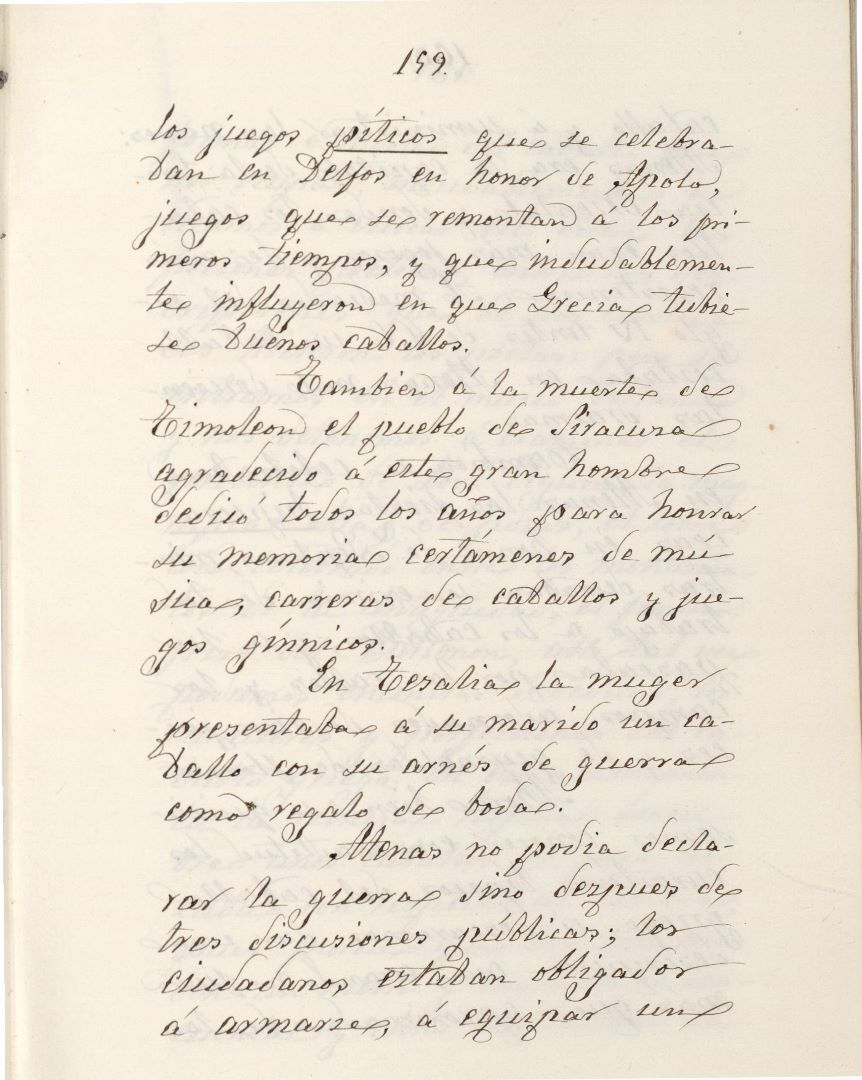 159.
los juegos píticos que se celebra-
ban en Delfos en honor de Apolo,
juegos que se remontan á los pri-
meros tiempos, y que indudablemen-
te influyeron en que Grecia tubie-
se buenos caballos.
Tambien á la muerte de
Timoleon el pueblo de Siracusa
agradecido á este gran hombre
dedicó todos los años para honrar
su memoria certámenes de mú
sica, carreras de caballos y jue-
gos gímnicos.
En Tesalia la muger
presentaba á su marido un ca-
ballo con su arnés de guerra
como regalo de boda.
Atenas no podia decla-
rar la guerra sino despues de
tres discusiones públicas; los
ciudadanos estaban obligados
á armarse, á equipar un